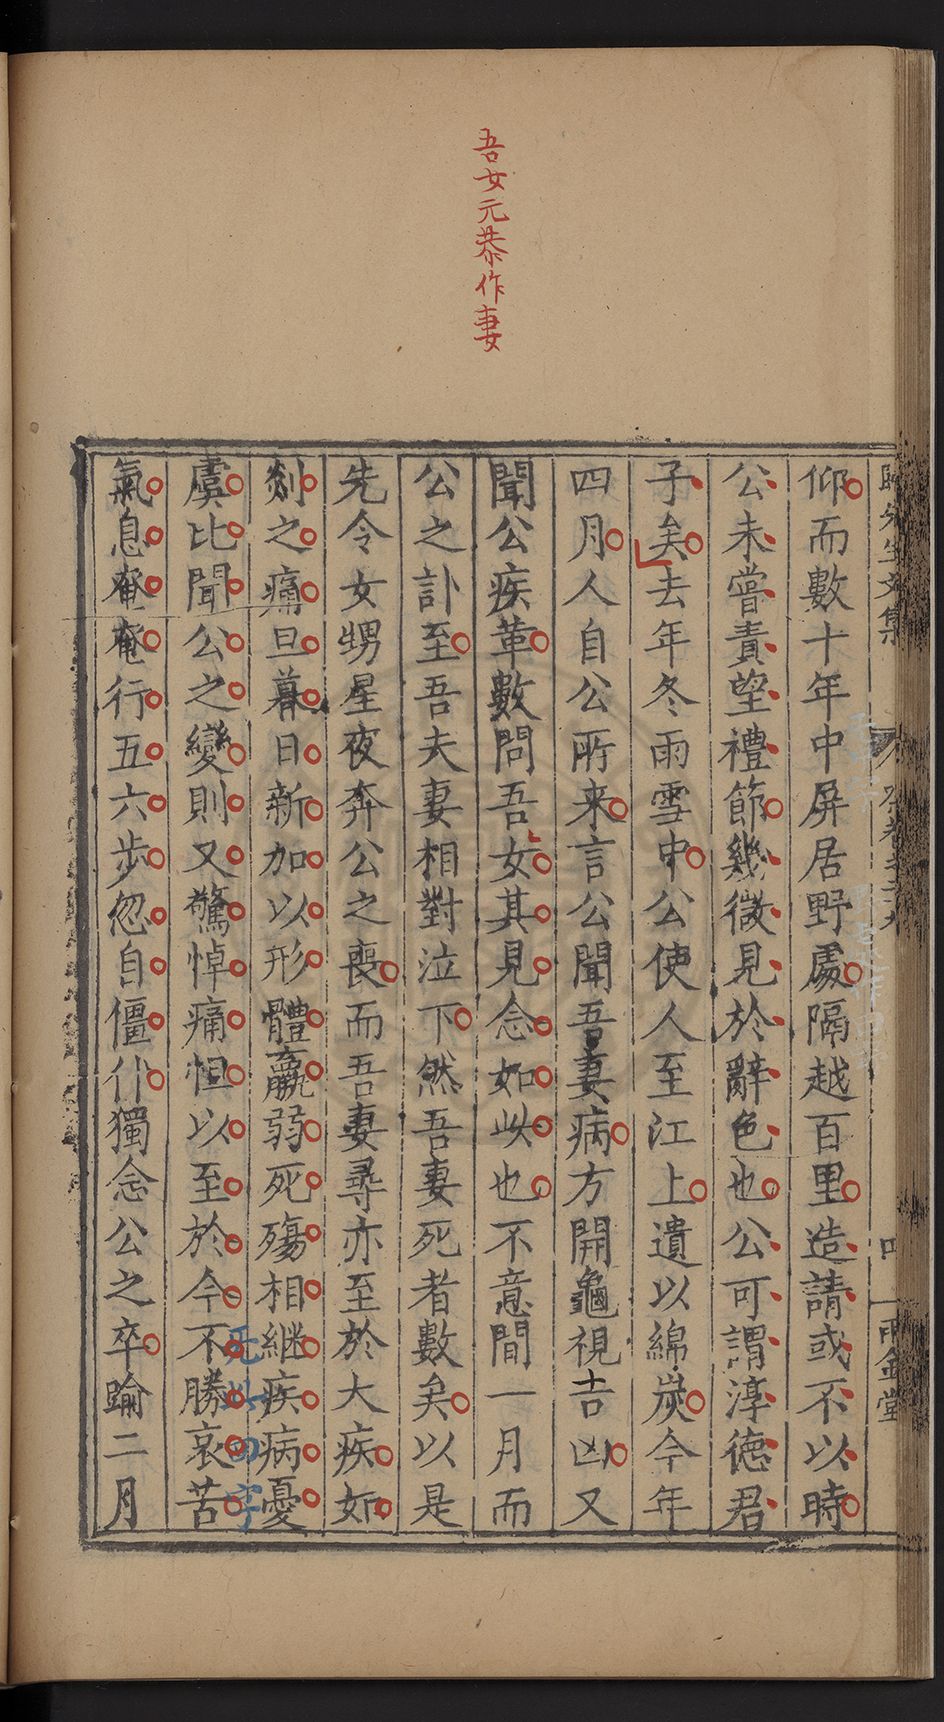 吾女元恭作妻
仰而數十年中屏居野處隔越百里造請或不以時
公未嘗責望禮節幾微見於辭色也公可謂淳德君
子矣去年冬雨雪中公使人至江上遺以綿炭今年
四月人自公所来言公聞吾妻病方開龜視吉凶又
聞公疾革數問吾女其見念如此也不意間一月而
公之訃至吾夫妻相對泣下然吾妻死者數矣以是
先令女甥星夜奔公之喪而吾妻尋亦至於大疾如
刻之痛旦暮日新加以形體羸弱死殤相継疾病憂
虞比聞公之變則又驚悼痛怛以至於今不勝哀苦
氣息奄奄行五六步忽自僵仆獨念公之卒踰二月
四
雨金堂